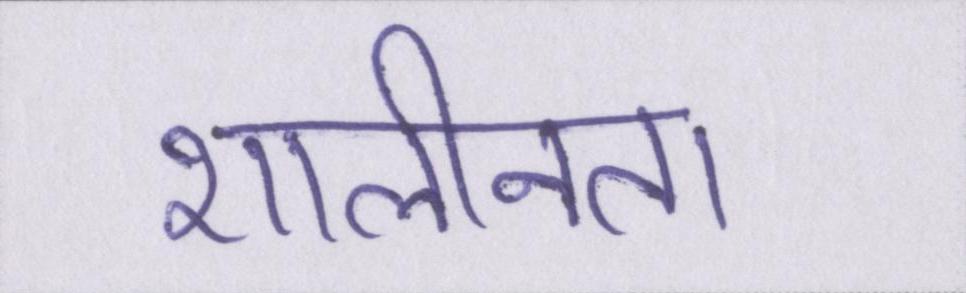 शालीनता